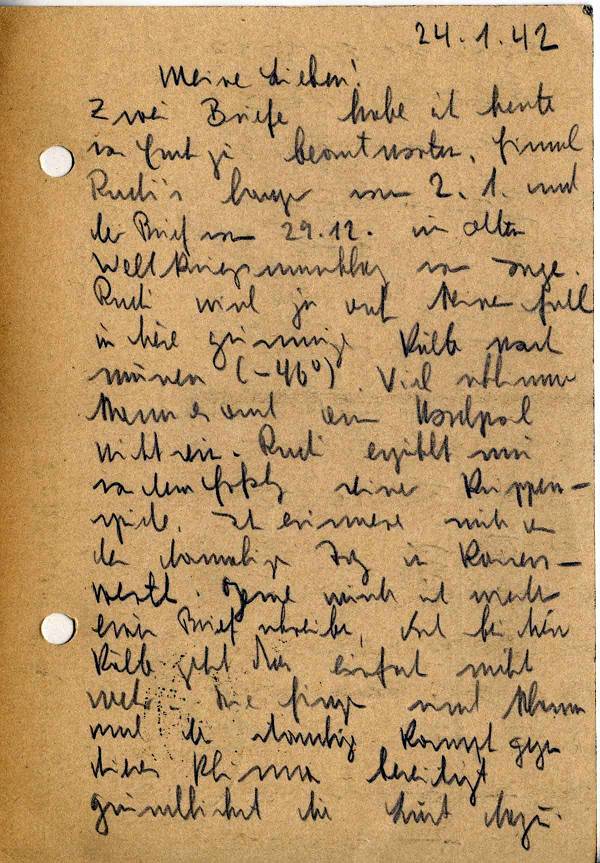 24.1.42
Meine Lieben!
Zwei Briefe habe ich heute
beantworten, Einmal
Rudi's vom 2.1. und
der Brief vom 29.12. im alten
von Inge.
Rudi wird ja auf keinen Fall
in diese grimmige Kälte
müssen (-46°). Viel schlimmer
kann es auch am Nordpol
nicht sein. Rudi erzählt mir
von dem Erfolg seiner Krippen-
spiele. Ich erinnere mich an
den damaligen in Kaisers-
werth. Gerne würde ich
einen Brief schreibe, doch bei der
Kälte geht das einfach nicht
mehr. Die Finger sind klamm
und der ständige Kampf gegen
dieses Klima beseitigt
gründlichst die Lust dazu.